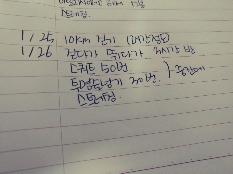 스트레칭.
1/25 10km 걷기 (2시간 정도)
1/26 걷다가 뛰다가 2시간 반
스쿼트 50번
투명줄넘기 30번 } 중간에
스트레칭.